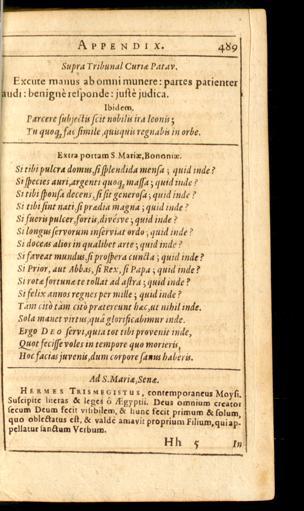 APPENDIX. 489
Supra Tribunal Curiæ Patav.
Excute manus ab omni munere: partes patienter
audi: benignè responde: justè judica.
Ibidem.
Parcere subjectis scit nobilis ira leonis;
Tu quoq, fac simile, quisquis regnabis in orbe.
Extra portam S. Mariæ, Bononiæ.
Si tibi pulcra domus, si splendida mensa; quid inde?
Si species auri, argenti quoq, massa; quid inde?
Si tibi sponsa decens, si sit generosa; quid inde?
Si tibi sint nati, si prædia magna; quid inde?
Si fueris pulcer, fortis, divésve; quid inde?
Si longus servorum inserviat ordo; quid inde?
Si doceas alios in qualibet arte; quid inde?
Si faveat mundus, si prospera cuncta; quid inde?
Si Prior, aut Abbas, si Rex, si Papa; quid inde?
Si rota fortunæ te tollat ad astra; quid inde?
Si felix annos regnes per mille; quid inde?
Tàm citò tàm citò prætereunt hæc, ut nihil inde.
Sola manet virtus, quâ glorificabimur inde.
Ergo DEO servi, quia tot tibi provenit inde,
Quot fecisse voles in tempore quo morieris,
Hoc facias juvenis, dum corpore sanus haberis.
Ad S. Maria, Senæ.
HERMES TRISMEGISTUS, contemporaneus Moysi.
Suscipite literas & leges ô Ægyptii. Deus omnium creator
secum Deum fecit visibilem, & hunc fecit primum & solum,
quo oblectatus est, & valde amavit proprium Filium, qui ap-
pellatur sanctum Verbum.
Hh 5 In